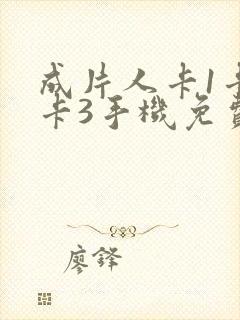 成片人卡1卡
卡3手機免費
廖鋒